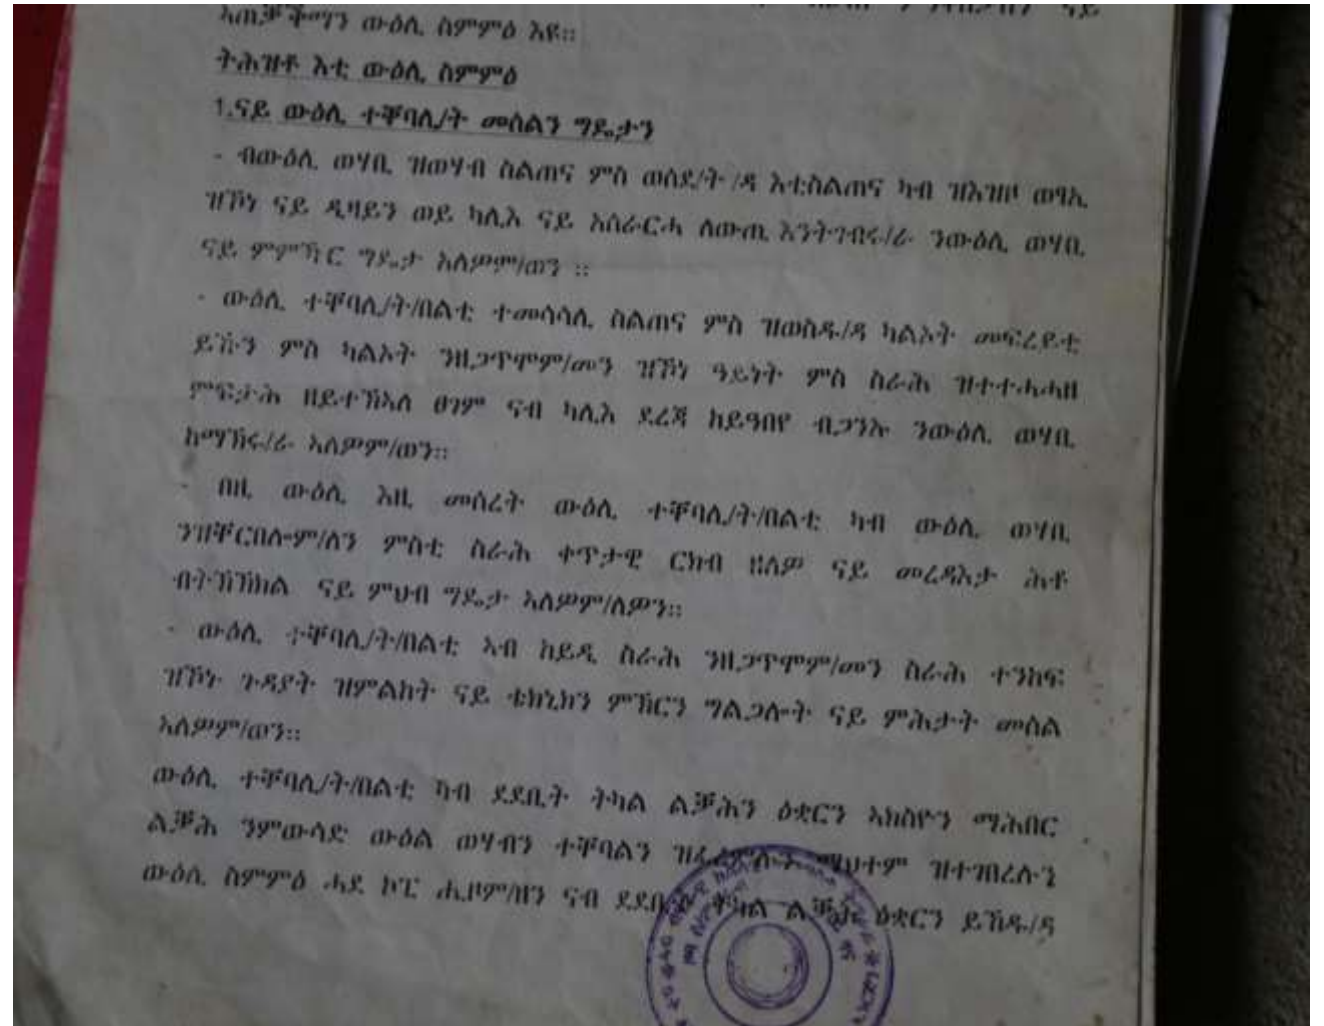 ኣጠቓቕማን ውዕሊ ስምምዕ እዩ።
ትሕዝቶ እቲ ውዕሊ ስምምዕ
1.ናይ ውዕሊ ተቐባሊ/ት መሰልን ግዴታን
- ብውዕሊ ወሃቢ ዝወሃብ ስልጠና ምስ ወሰደ/ት /ዳ እቲስልጠና ካብ ዝእዝዞ ወፃኢ
ዝኾነ ናይ ዲዛይን ወይ ካሊእ ናይ አሰራርሓ ለውጢ እንትገብሩ/ራ ንውዕሊ ወሃቢ
ናይ ምምኻር ግዴታ አለዎም/ወን ።
- ውዕሊ ተቐባሊ/ት/በልቲ ተመሳሳሊ ስልጠና ምስ ዝወስዱ/ዳ ካልኦት መፍረይቲ
ይኹን ምስ ካልኦት ንዘጋጥሞም/መን ዝኾነ ዓይነት ምስ ስራሕ ዝተተሓሓዘ
ምፍታሕ ዘይተኽኣለ ፀገም ናብ ካሊእ ደረጃ ከይዓበየ ብጋንኡ ንውዕሊ ወሃቢ
ከማኽሩ/ራ ኣለዎም/ወን።
- በዚ ውዕሊ እዚ መሰረት ውዕሊ ተቐባሊ/ት/በልቲ ካብ ውዕሊ ወሃቢ
ንዝቐርበሎም/ለን ምስቲ ስራሕ ቀጥታዊ ርክብ ዘለዎ ናይ መረዳእታ ሕቶ
ብትኽኽክል ናይ ምህብ ግዴታ ኣለዎም/ለዎን።
- ውዕሊ ተቐባሊ/ት/በልቲ ኣብ ከይዲ ስራሕ ንዘጋጥሞም/መን ስራሕ ተንከፍ
ዝኾኑ ጉዳያት ዝምልከት ናይ ቴክኒክን ምኽርን ግልጋሎት ናይ ምሕታት መሰል
ኣለዎም/ወን።
ውዕሊ ተቐባሊ/ት/በልቲ ካብ ደደቢት ትካል ልቓሕን ዕቋርን ኣክስዮን ማሕበር
ልቓሕ ንምውሳድ ውዕል ወሃብን ተቐባልን ማህተም ዝተገበረሉን
ውዕሊ ስምምዕ ሓደ ኮፒ ሒዞም/ዘን ናብ ደደቢት ትካል ልቓሕን ዕቋርን ይኸዱ/ዳ